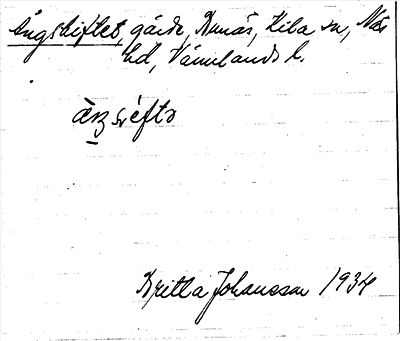 Ängskiftet, gärde, Runäs, Kila sn, Näs
hd, Värmlands l.
Britta Johansson 1934